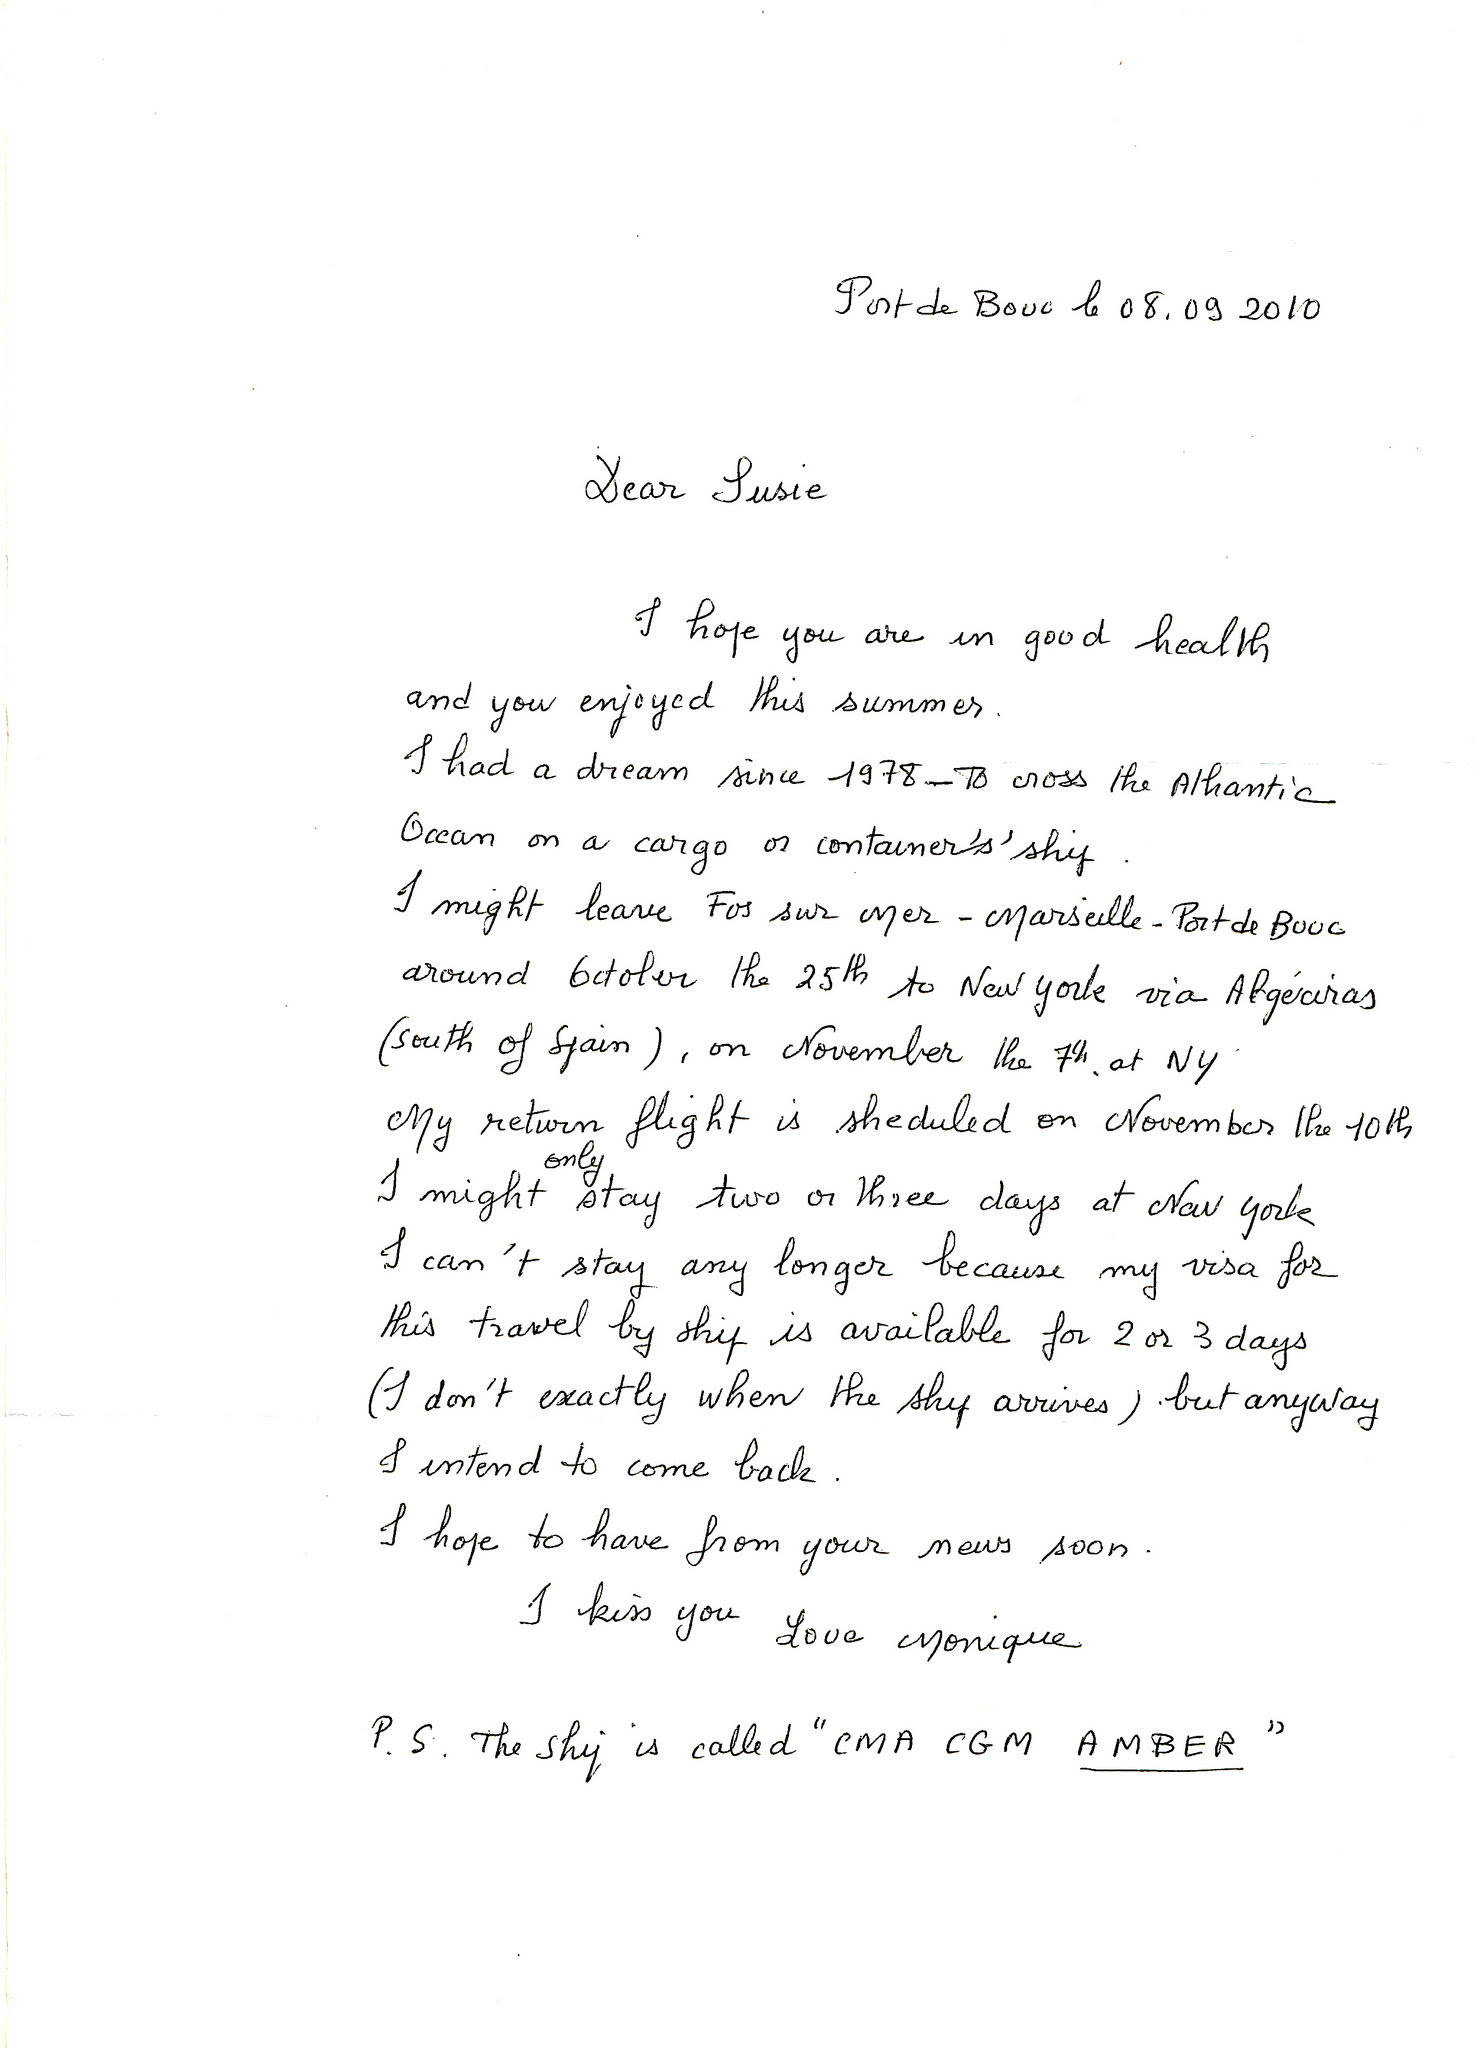 Port de Bouc le 08.09 2010
Dear Susie
I hope you are in good health
and you enjoyed this summer.
I had a dream since 1978_To cross the Atlantic
Ocean on a cargo or container's' ship.
I might leave Fos sur Mer - Marseille - Port de Bouc
around October the 25th to New York via Algéciras
(south of Spain), on November the 7th. at NY
My return flight is sheduled on November the 10th
only
I might stay two or three days at New York
I can't stay any longer because my visa for
this travel by ship is available for 2 or 3 days
(I don't exactly when the ship arrives) but anyway
I intend to come back.
I hope to have from your news soon.
I kiss you Love Monique
P.S. The ship is called "CMA CGM AMBER"